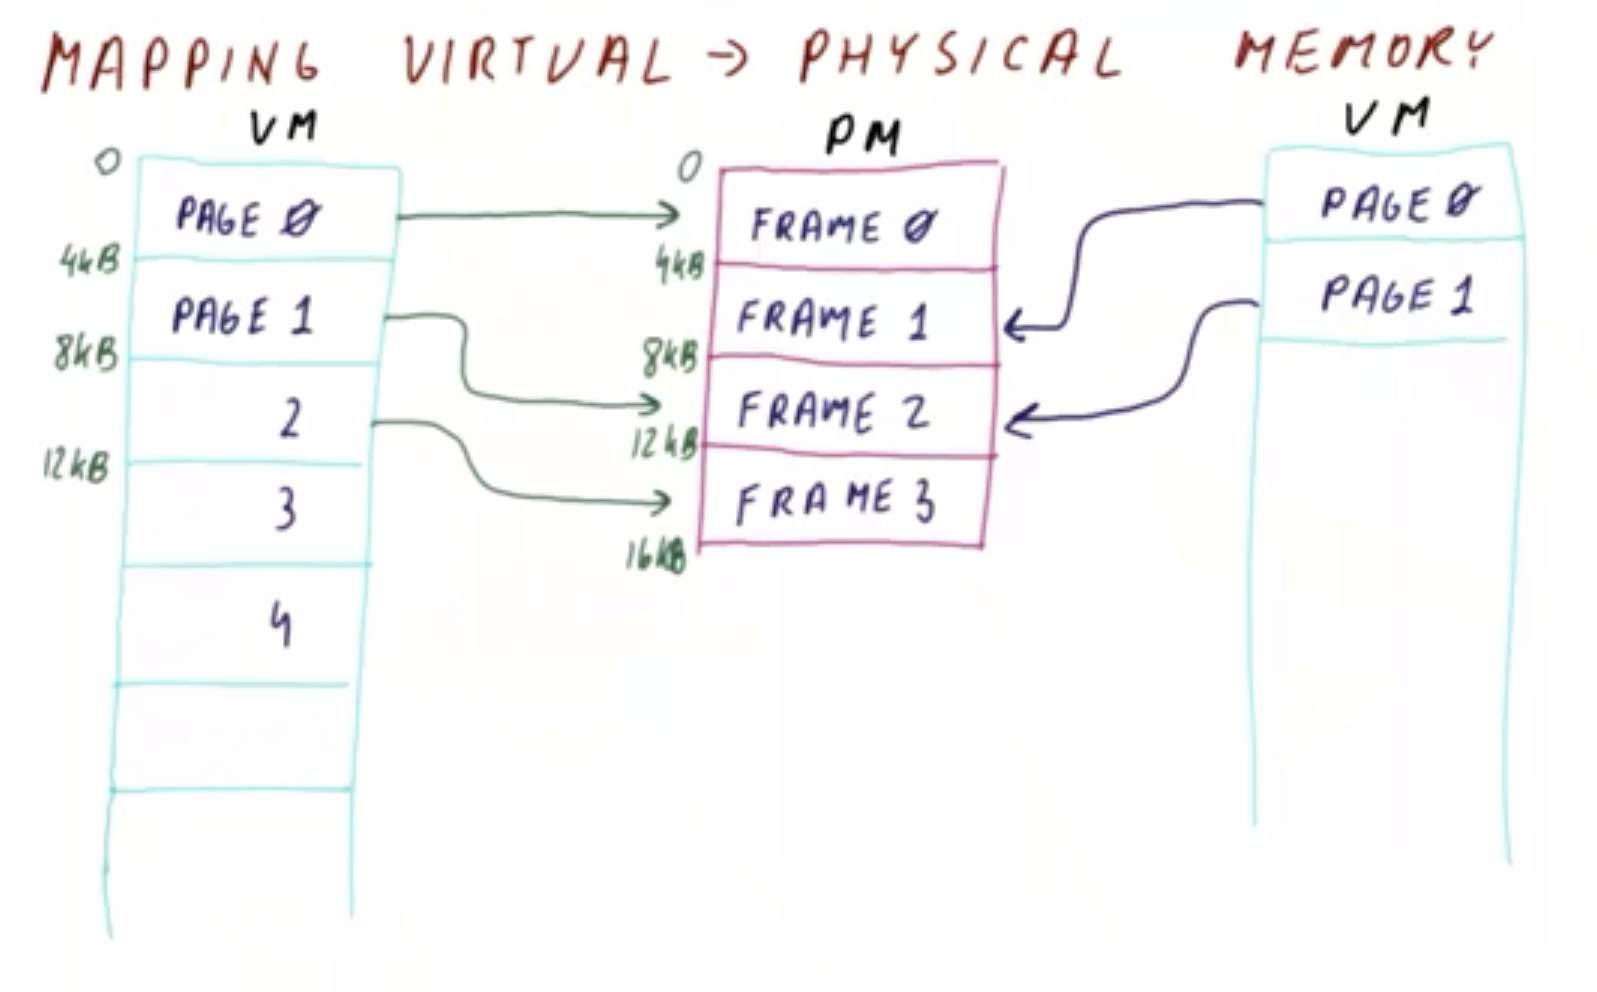 MAPPING VIRTUAL → PHYSICAL MEMORY
VM
0
PAGE 0
4kB
PAGE 1
8kB
2
12kB
3
4
PM
0
FRAME 0
4kB
FRAME 1
8kB
FRAME 2
12kB
FRAME 3
16kB
VM
PAGE 0
PAGE 1